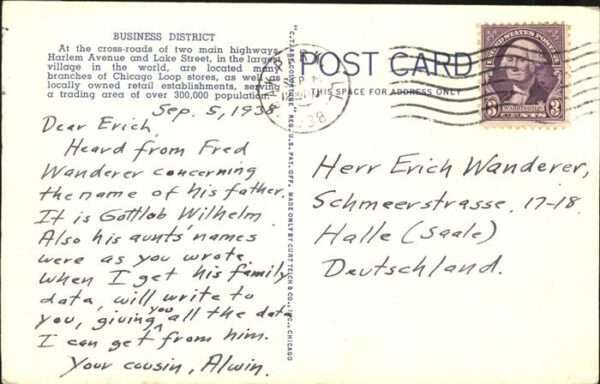 BUSINESS DISTRICT
At the cross-roads of two main highways,
Harlem Avenue and Lake Street, in the largest
village in the world, are located many
branches of Chicago Loop stores, as well as
locally owned retail establishments, serving
a trading area of over 300,000 population.
Sep. 5, 1938.
Dear Erich,
Heard from Fred
Wanderer concerning
the name of his father.
It is Gottlob Wilhelm.
Also his aunts' names
were as you wrote.
When I get his family
data, will write to
you, giving you all the data
I can get from him.
Your cousin, Alwin.
"C.T. ART-COLORTONE" REG. U.S. PAT. OFF. MADE ONLY BY CURT TEICH & CO., INC., CHICAGO
POST CARD
THIS SPACE FOR ADDRESS ONLY
UNITED STATES POSTAGE
3 WASHINGTON 3
CENTS
Herr Erich Wanderer,
Schmeerstrasse, 17-18
Halle (Saale)
Deutschland.